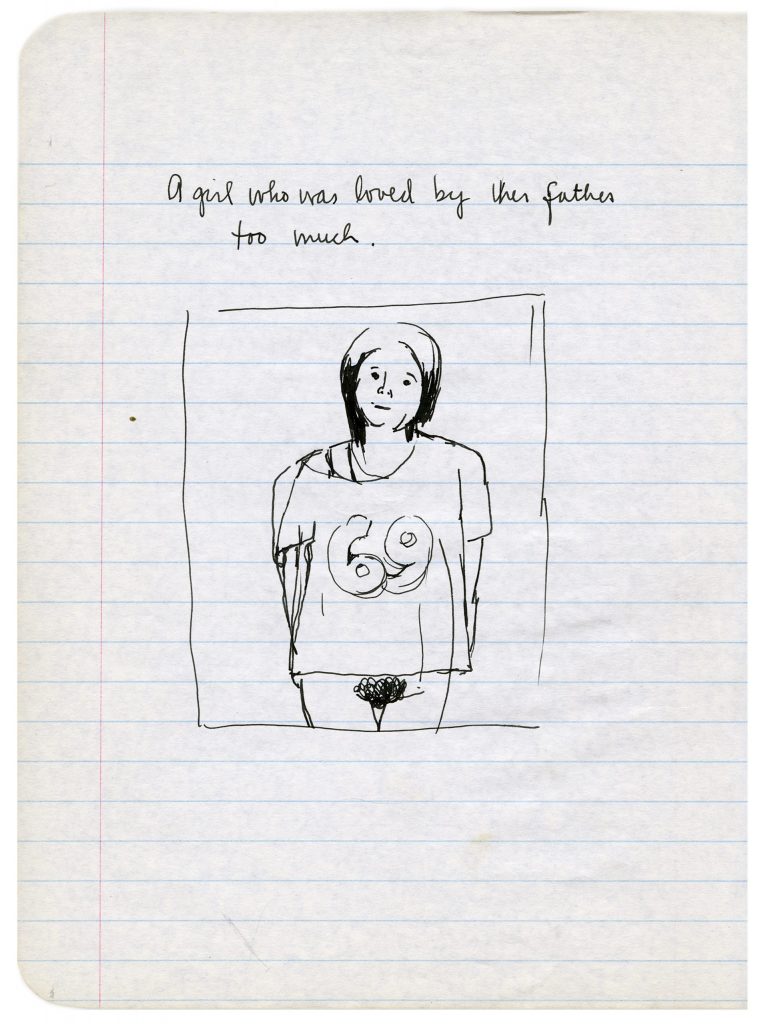 A girl who was loved by her father
too much.
69